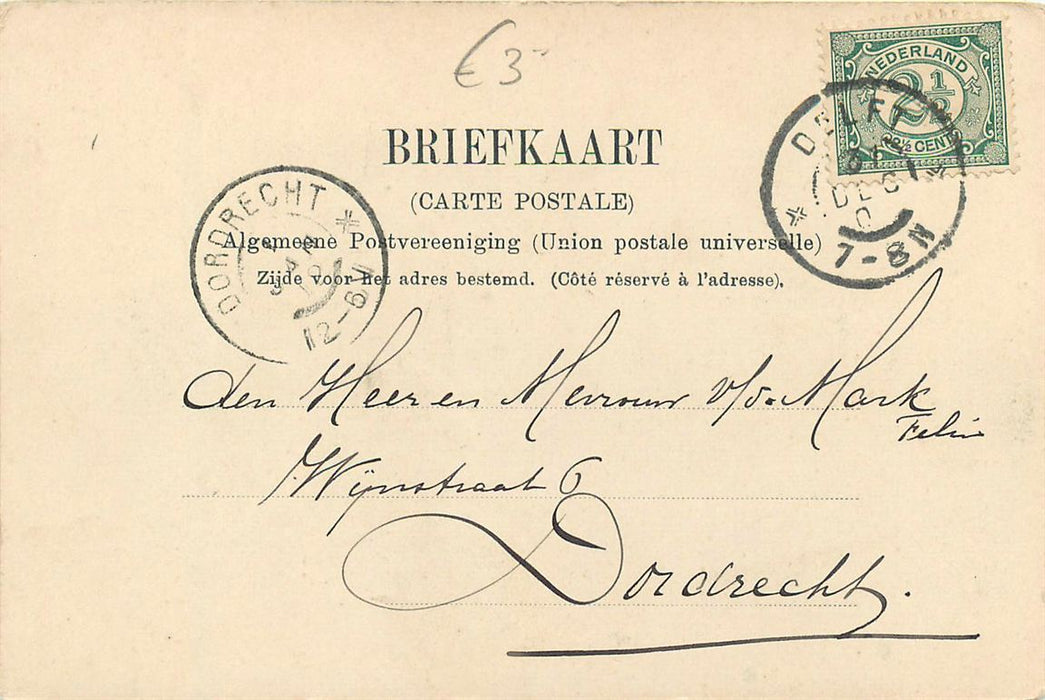 € 3-
NEDERLAND
2½
2½ CENT
DELFT
31
DEC
0
7-8N
BRIEFKAART
(CARTE POSTALE)
DORDRECHT
12-6V
Algemeene Postvereeniging (Union postale universelle)
Zijde voor het adres bestemd. (Côté réservé à l'adresse).
den Heer en Mevrouw v/d. Mark
Wijnstraat 6
Dordrecht.